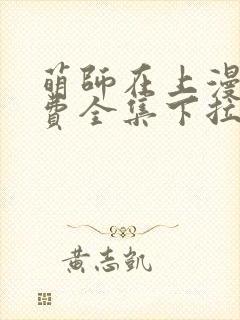 萌師在上漫
費全集下拉
黃志凱